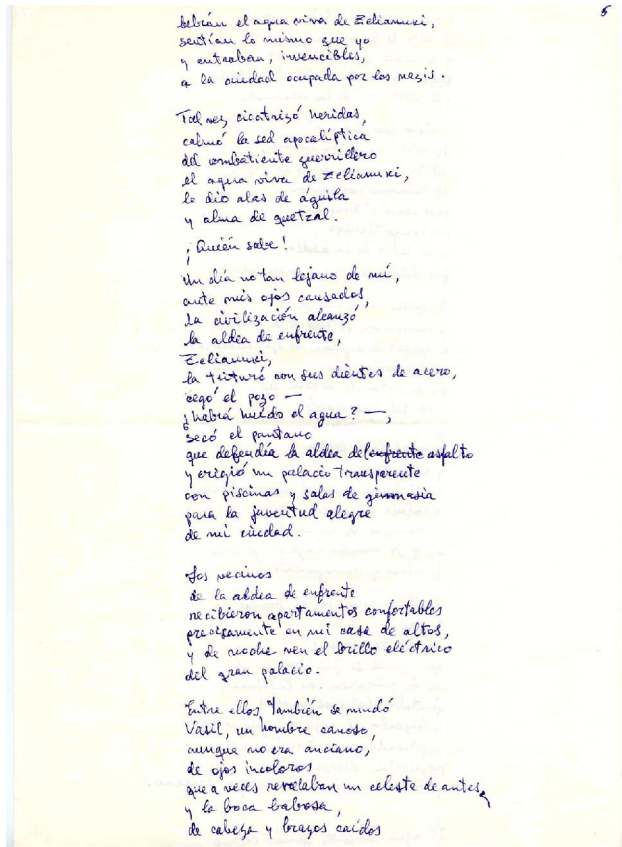 5
bebían el agua viva de Zelianuki,
sentían lo mismo que yo
y entraban, invencibles,
a la ciudad ocupada por los nazis.
Tal vez, cicatrizó heridas,
calmó la sed apocalíptica
del combatiente guerrillero
el agua viva de Zelianuki,
le dio alas de águila
y alma de quetzal.
¡Quién sabe!
Un día no tan lejano de mí,
ante mis ojos cansados,
la civilización alcanzó
la aldea de enfrente,
Zelianuki,
la trituró con sus dientes de acero,
cegó el pozo —
¿habrá huído el agua? —,
secó el pantano
que defendía la aldea del enfrente asfalto
y erigió un palacio transparente
con piscinas y salas de gimnasia
para la juventud alegre
de mi ciudad.
Los vecinos
de la aldea de enfrente
recibieron apartamentos confortables
precisamente en mi casa de altos,
y de noche ven el brillo eléctrico
del gran palacio.
Entre ellos, también se mudó
Vasil, un hombre canoso,
aunque no era anciano,
de ojos incoloros
que a veces revelaban un celeste de antes,
y la boca babosa,
de cabeza y brazos caídos